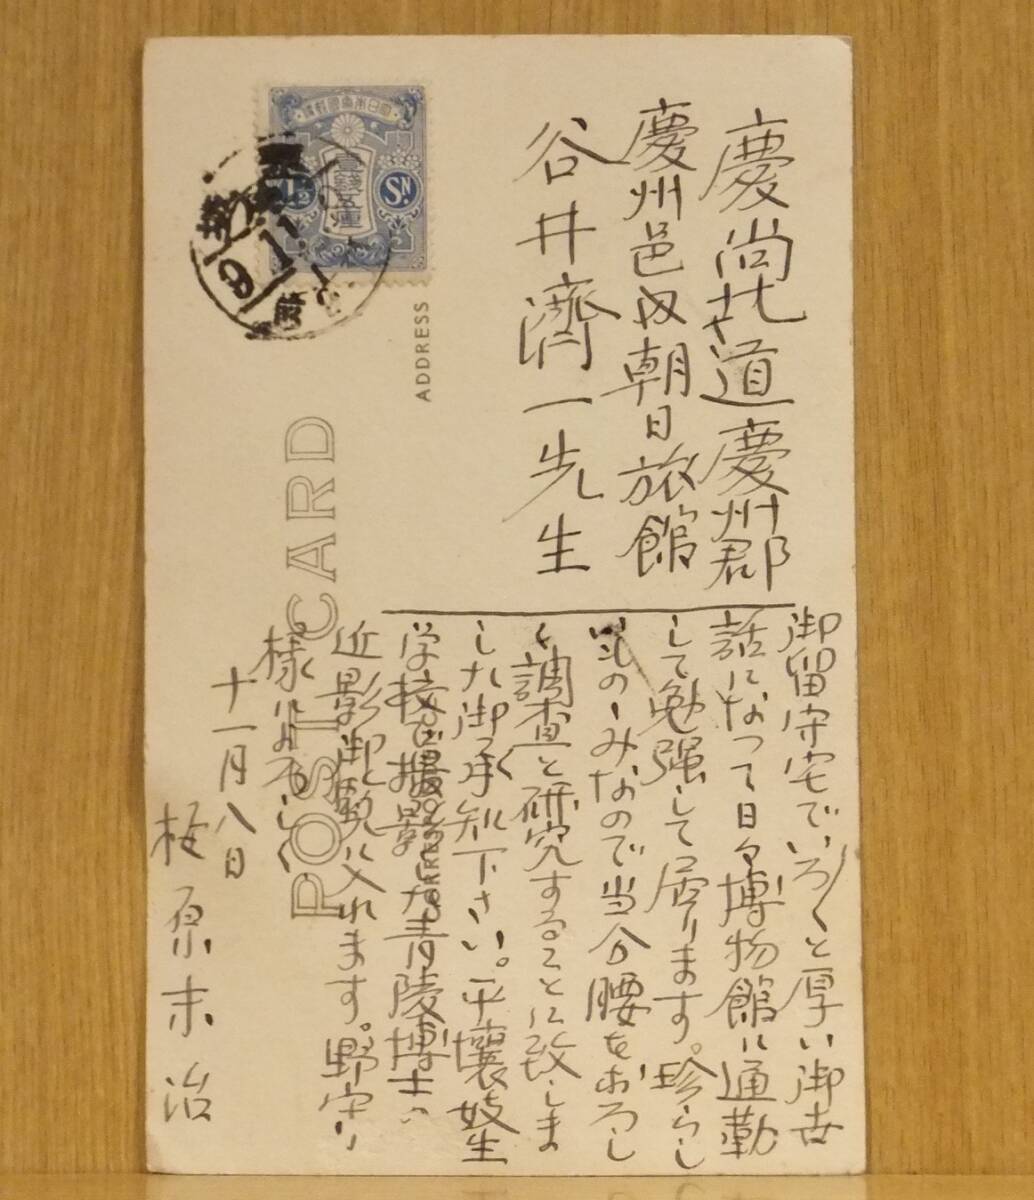 慶尚北道慶州郡
慶州邑内朝日旅館
谷井濟一先生
御留守宅でいろ〱と厚い御世
話になつて日々博物館に通勤
して勉強して居ります。珍らし
いものゝみなので当分腰をおろし
て調査と研究することに致しま
した御承知下さい。平壤妓生
学校で撮影した青陵博士の
近影御覧に入れます。野守
様によろしく
十一月八日
梅原末治
大日本帝國郵便
壹錢五厘
1½
Sɴ
9
11
前
ADDRESS
POST CARD